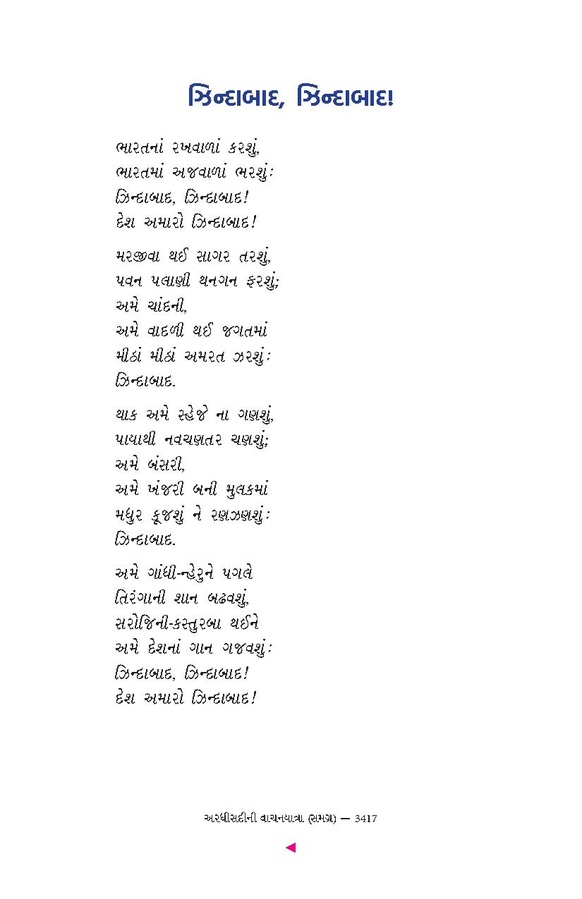 ઝિન્દાબાદ, ઝિન્દાબાદ!
ભારતનાં રખવાળાં કરશું,
ભારતમાં અજવાળાં ભરશું:
ઝિન્દાબાદ, ઝિન્દાબાદ!
દેશ અમારો ઝિન્દાબાદ!
મરજીવા થઈ સાગર તરશું,
પવન પલાણી થનગન ફરશું;
અમે ચાંદની,
અમે વાદળી થઈ જગતમાં
મીઠાં મીઠાં અમરત ઝરશું:
ઝિન્દાબાદ.
થાક અમે સ્હેજે ના ગણશું,
પાયાથી નવચણતર ચણશું;
અમે બંસરી,
અમે ખંજરી બની મુલકમાં
મધુર કૂજશું ને રણઝણશું:
ઝિન્દાબાદ.
અમે ગાંધી-ન્હેરુને પગલે
તિરંગાની શાન બઢવશું,
સરોજિની-કસ્તુરબા થઈને
અમે દેશનાં ગાન ગજવશું:
ઝિન્દાબાદ, ઝિન્દાબાદ!
દેશ અમારો ઝિન્દાબાદ!
અરધીસદીની વાચનયાત્રા (સમગ્ર) — 3417